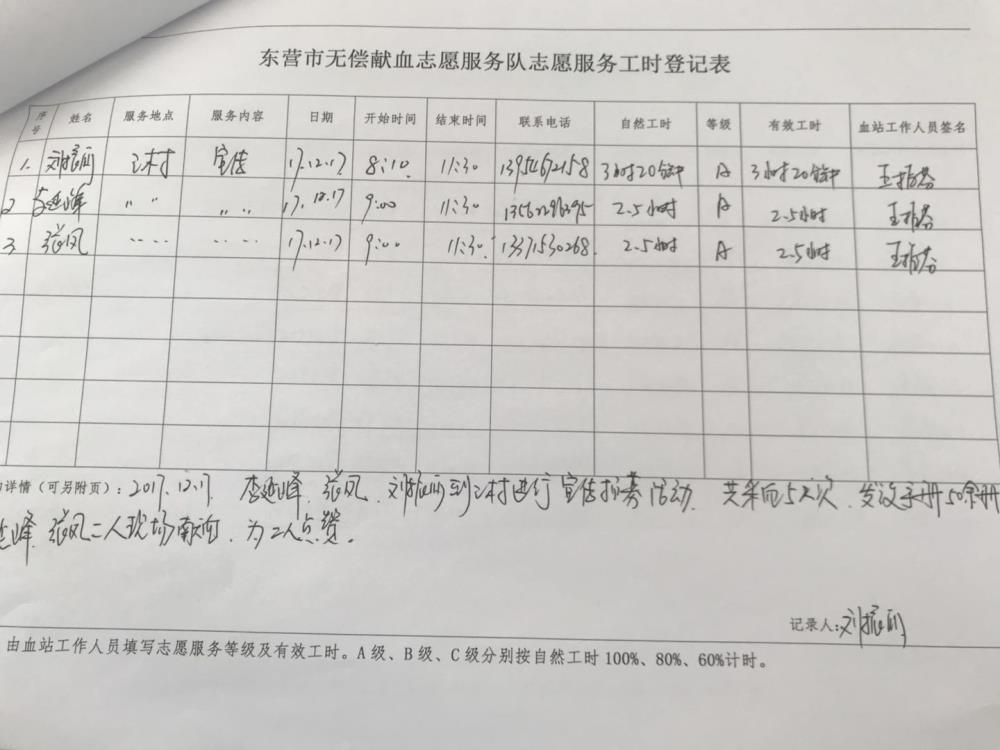 东营市无偿献血志愿服务队志愿服务工时登记表
序号 姓名 服务地点 服务内容 日期 开始时间 结束时间 联系电话 自然工时 等级 有效工时 血站工作人员签名
1. 村 宣传 17.12.17 8:10 11:30 13954672158 3小时20分钟 A 3小时20分钟
2 李延峰 〃 〃 17.12.17 9:00 11:30 2.5小时 A 2.5小时
3 张凤 17.12.17 9:00 11:30. 13371530268. 2.5小时 A 2.5小时
详情（可另附页）：2017.12.17. 李延峰、张凤、 到 村进行宣传招募活动. 共采血52人次、发放手册50余册
延峰、张凤二人现场献血，为二人点赞。
记录人:
由血站工作人员填写志愿服务等级及有效工时。A 级、B 级、C 级分别按自然工时 100%、80%、60%计时。